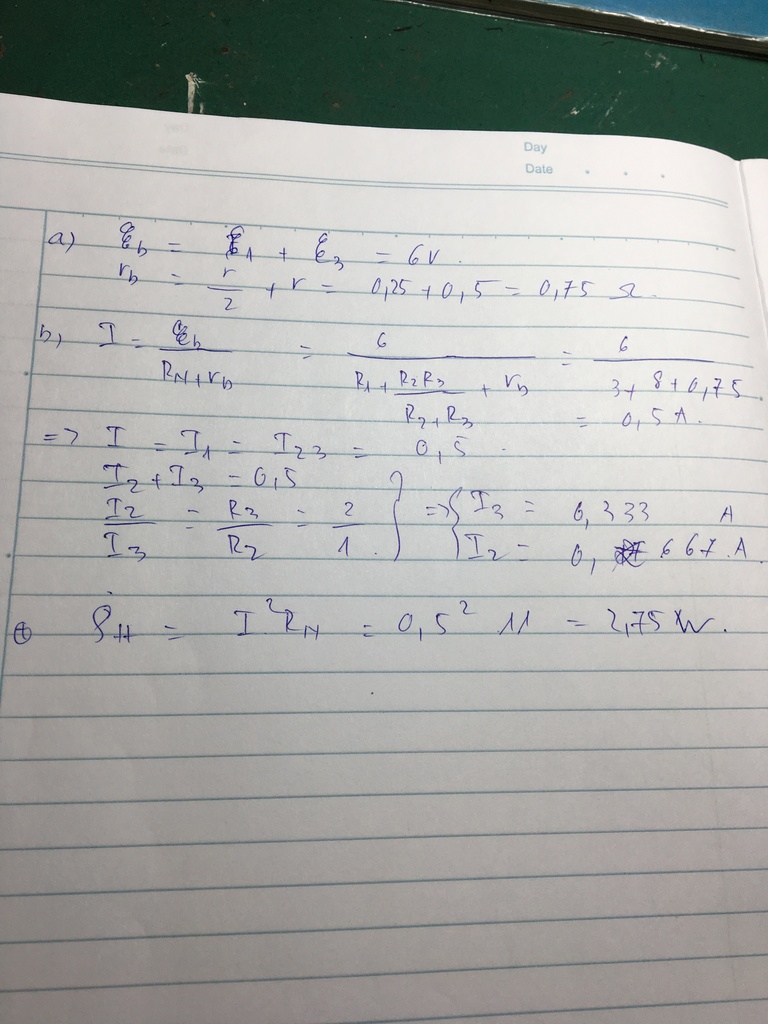 Day
Date . . .
a) ℰb = ℰ1 + ℰ3 = 6V.
rb = r/2 + r = 0,25 + 0,5 = 0,75 Ω.
b, I = ℰb/(RN + rb) = 6/(R1 + R2R3/(R2 + R3) + rb) = 6/(3 + 8 + 0,75)
= 0,5 A.
=> I = I1 = I23 = 0,5.
I2 + I3 = 0,5
I2/I3 = R3/R2 = 2/1. } => { I3 = 0,333 A
I2 = 0,667.A
⊕ PH = I².RN = 0,5² 11 = 2,75 W.